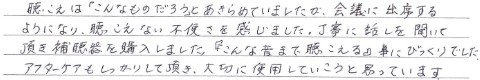 聴こえは「こんなものだろう」とあきらめていましたが、会議に出席する
ようになり、聴こえない不便さを感じました。丁寧に話しを聞いて
頂き補聴器を購入しました。『こんな音まで聴こえる』事にびっくりでした。
アフターケアもしっかりして頂き、大切に使用していこうと思っています